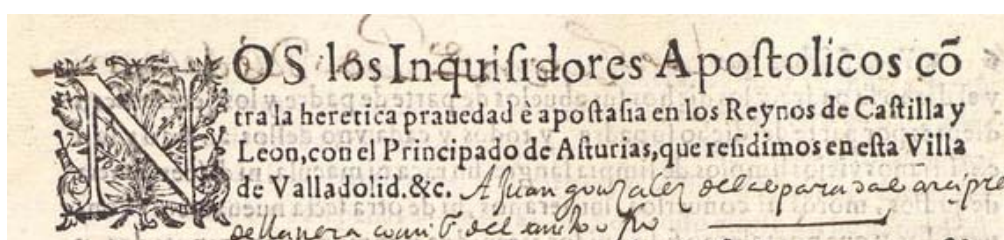 NOS los Inquisidores Apostolicos cõ
tra la heretica prauedad è apostasia en los Reynos de Castilla y
Leon, con el Principado de Asturias, que residimos en esta Villa
de Valladolid. &c. A Juan gonzalez
del